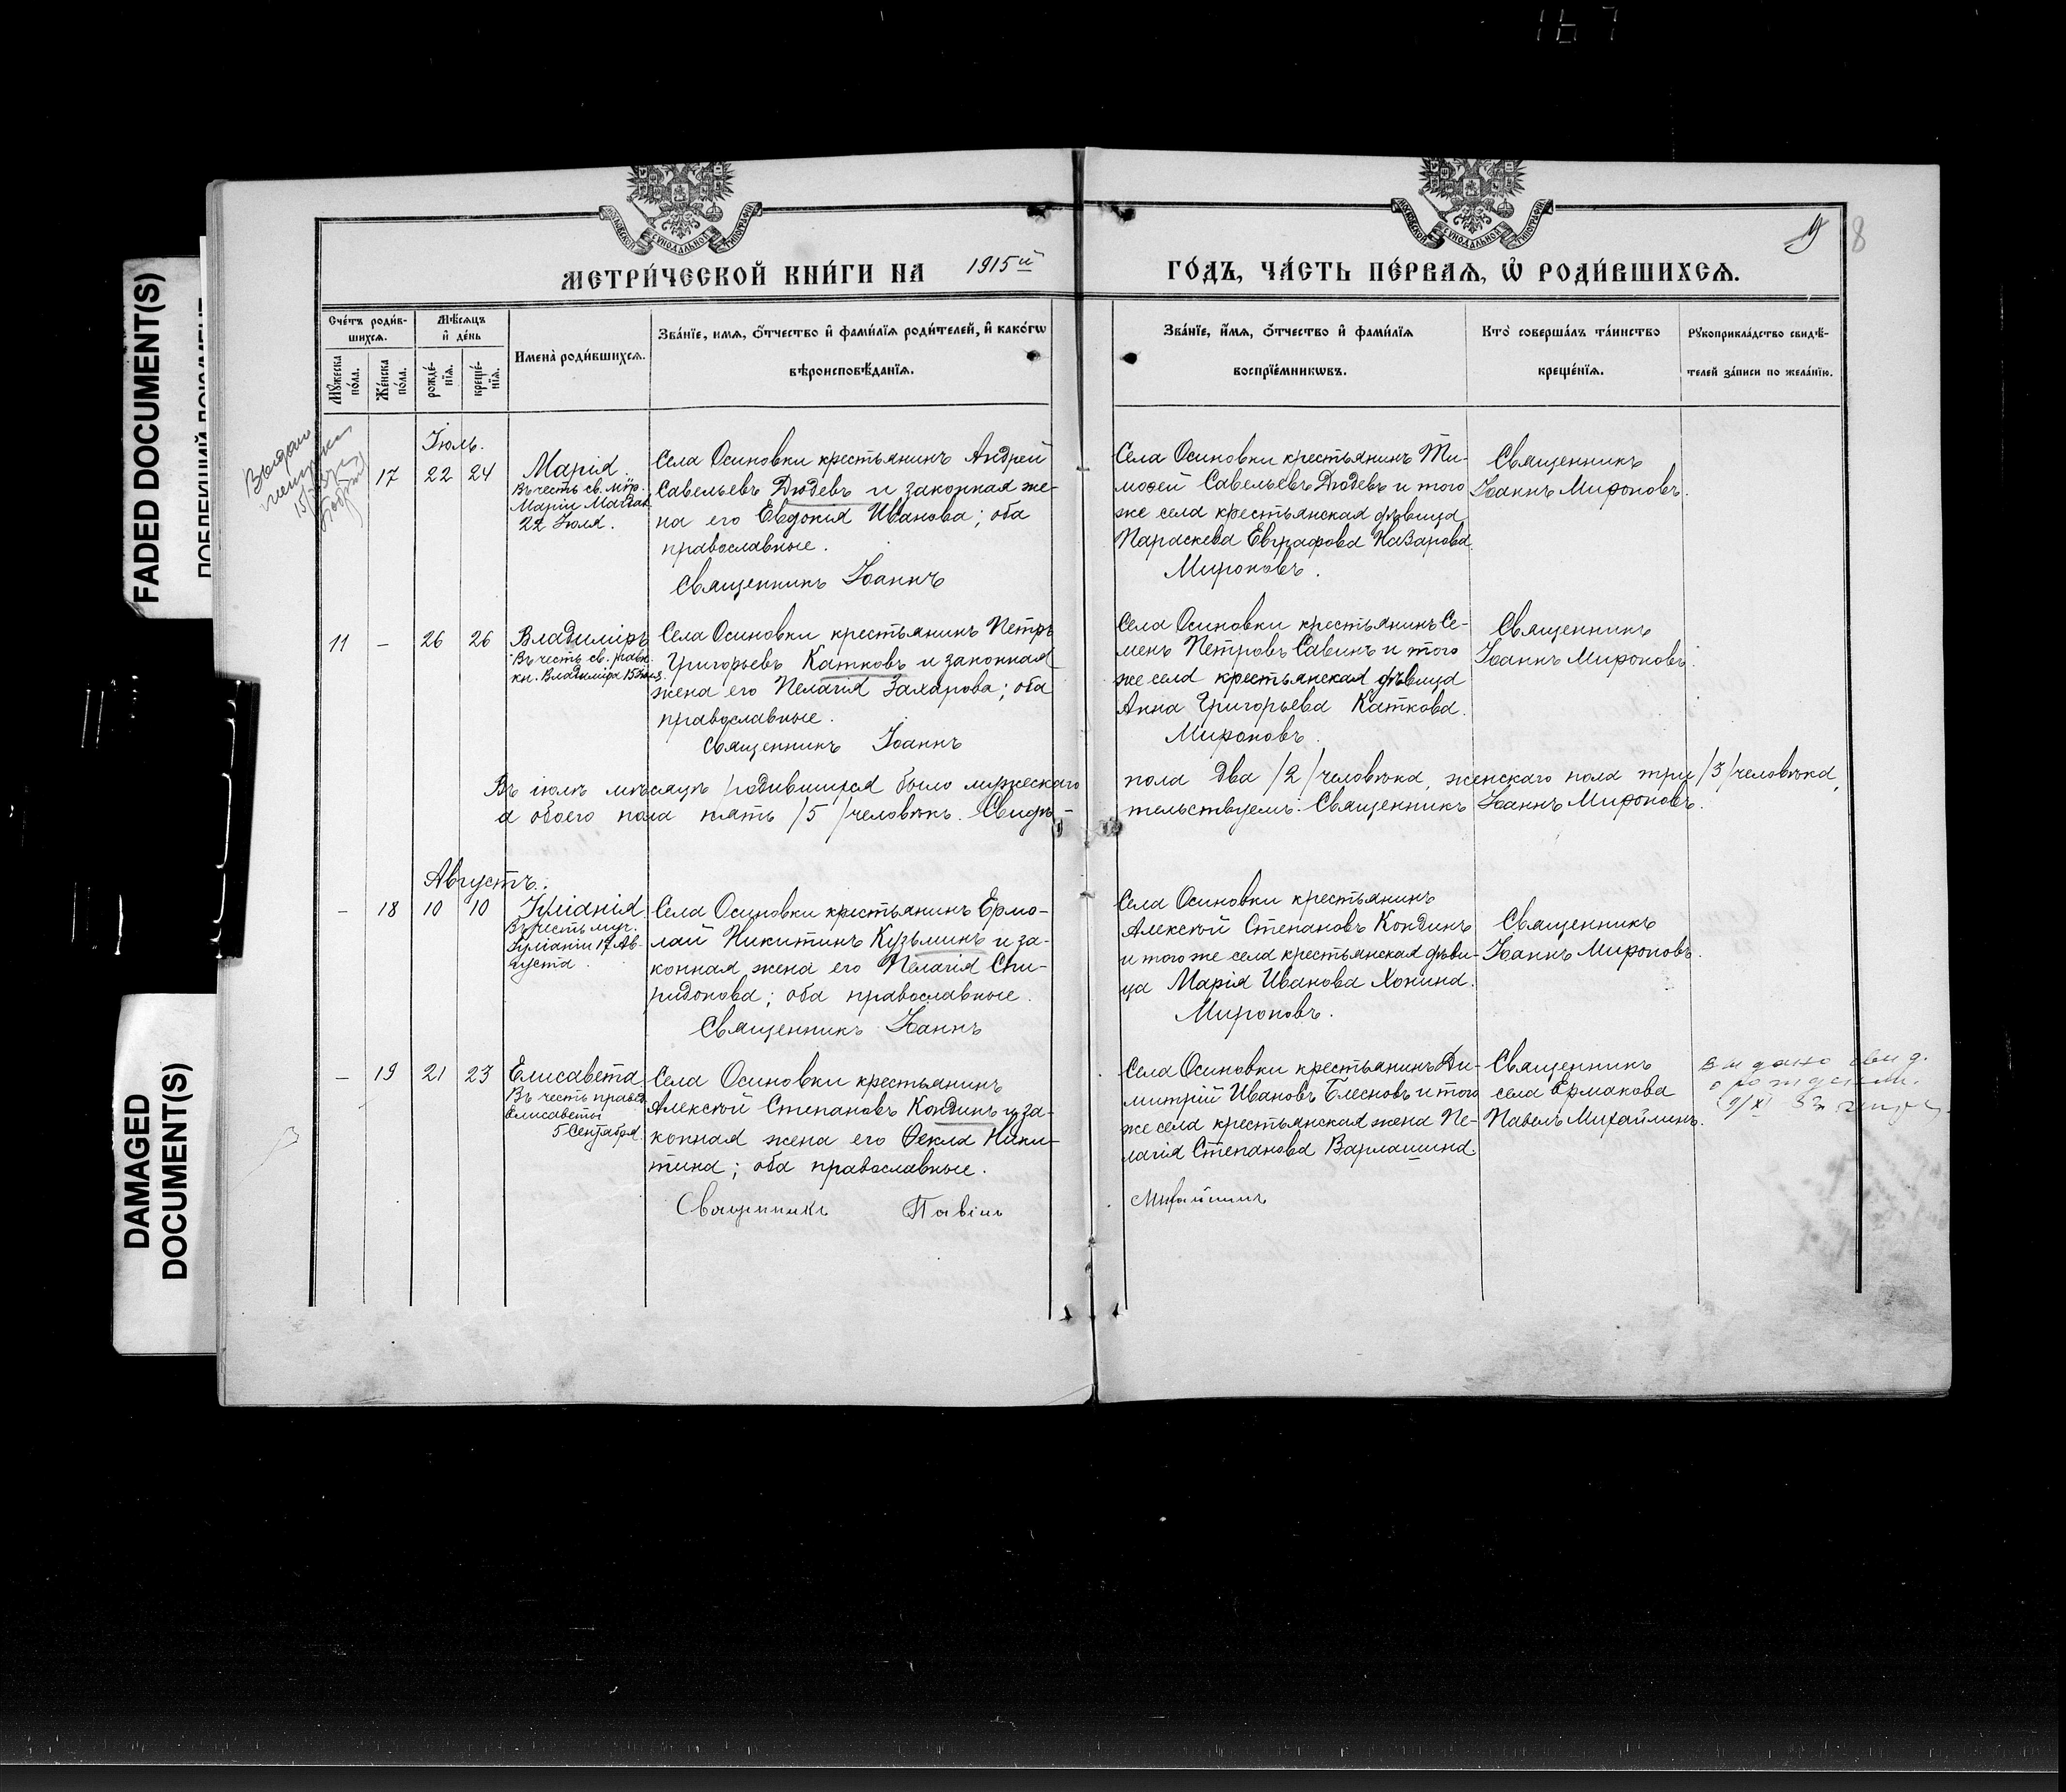 167
FADED DOCUMENT(S)
DAMAGED
DOCUMENT(S)
МОСКОВСКОЙ СѴНОДАЛЬНОЙ ТИПОГРАФІИ
МОСКОВСКОЙ СѴНОДАЛЬНОЙ ТИПОГРАФІИ
8
МЕТРИ́ЧЕСКОЙ КНИ́ГИ НА 1915й ГО́ДЪ, ЧА́СТЬ ПЕ́РВАѦ, Ѡ҆ РОДИ́ВШИХСѦ.
Сче́тъ роди́в-
шихсѧ.
Мꙋ́жеска по́ла.
Же́нска по́ла.
Мѣ́сѧцъ
и҆ де́нь
рожде́-
нїѧ.
креще́-
нїѧ.
Имена̀ роди́вшихсѧ.
Зва́нїе, имѧ, ѻ҆́тчество и҆ фами́лїѧ роди́телей, и҆ како́гѡ
вѣроисповѣ́данїѧ.
Зва́нїе, и҆́мѧ, ѻ҆́тчество и҆ фами́лїѧ
воспрїе́мникѡвъ.
Кто̀ соверша́лъ та́инство
креще́нїѧ.
Рꙋкоприкла́дство свидѣ́-
телей за́писи по жела́нїю.
Іюль.
17 22 24
Марія
Въ честь св. мѵр.
Маріи Магдал.
22 Іюля.
Села Осиновки крестьянинъ Андрей
Савельевъ Дюдевъ и законная же-
на его Евдокія Иванова; оба
православные.
Священникъ Іоаннъ
Села Осиновки крестьянинъ Ти-
моѳей Савельевъ Дюдевъ и того
же села крестьянская дѣвица
Параскева Евграфова Назарова.
Мироновъ.
Священникъ
Іоаннъ Мироновъ.
11 - 26 26
Владиміръ
Въ честь св. равн.
кн. Владиміра 15 Іюля.
Села Осиновки крестьянинъ Петръ
Григорьевъ Катковъ и законная
жена его Пелагія Захарова; оба
православные.
Священникъ Іоаннъ
Села Осиновки крестьянинъ Се-
менъ Петровъ Савинъ и того
же села крестьянская дѣвица
Анна Григорьева Каткова.
Мироновъ.
Священникъ
Іоаннъ Мироновъ.
Въ іюлѣ мѣсяцѣ родившихся было мужескаго пола два /2/ человѣка, женскаго пола три /3/ человѣка,
а обоего пола пять /5/ человѣкъ. Свидѣ-тельствуемъ: Священникъ Іоаннъ Мироновъ.
Августъ.
- 18 10 10
Іуліанія
Въ честь муч.
Іуліаніи 17 Ав-
густа.
Села Осиновки крестьянинъ Ермо-
лай Никитинъ Кузьминъ и за-
конная жена его Пелагія Спи-
ридонова; оба православные.
Священникъ Іоаннъ
Села Осиновки крестьянинъ
Алексѣй Степановъ Кондинъ
и того же села крестьянская дѣви-
ца Марія Иванова Хонина.
Мироновъ.
Священникъ
Іоаннъ Мироновъ.
- 19 21 23
Елисавета
Въ честь правед.
Елисаветы
5 Сентября.
Села Осиновки крестьянинъ
Алексѣй Степановъ Кондинъ и за-
конная жена его Ѳекла Ники-
тина; оба православные.
Священникъ Павелъ
Села Осиновки крестьянинъ Ди-
митрій Ивановъ Блесновъ и того
же села крестьянская жена Пе-
лагія Степанова Варлашина.
Михайлинъ
Священникъ
села Ермакова
Павелъ Михайлинъ.
выдано свид.
о рождении.